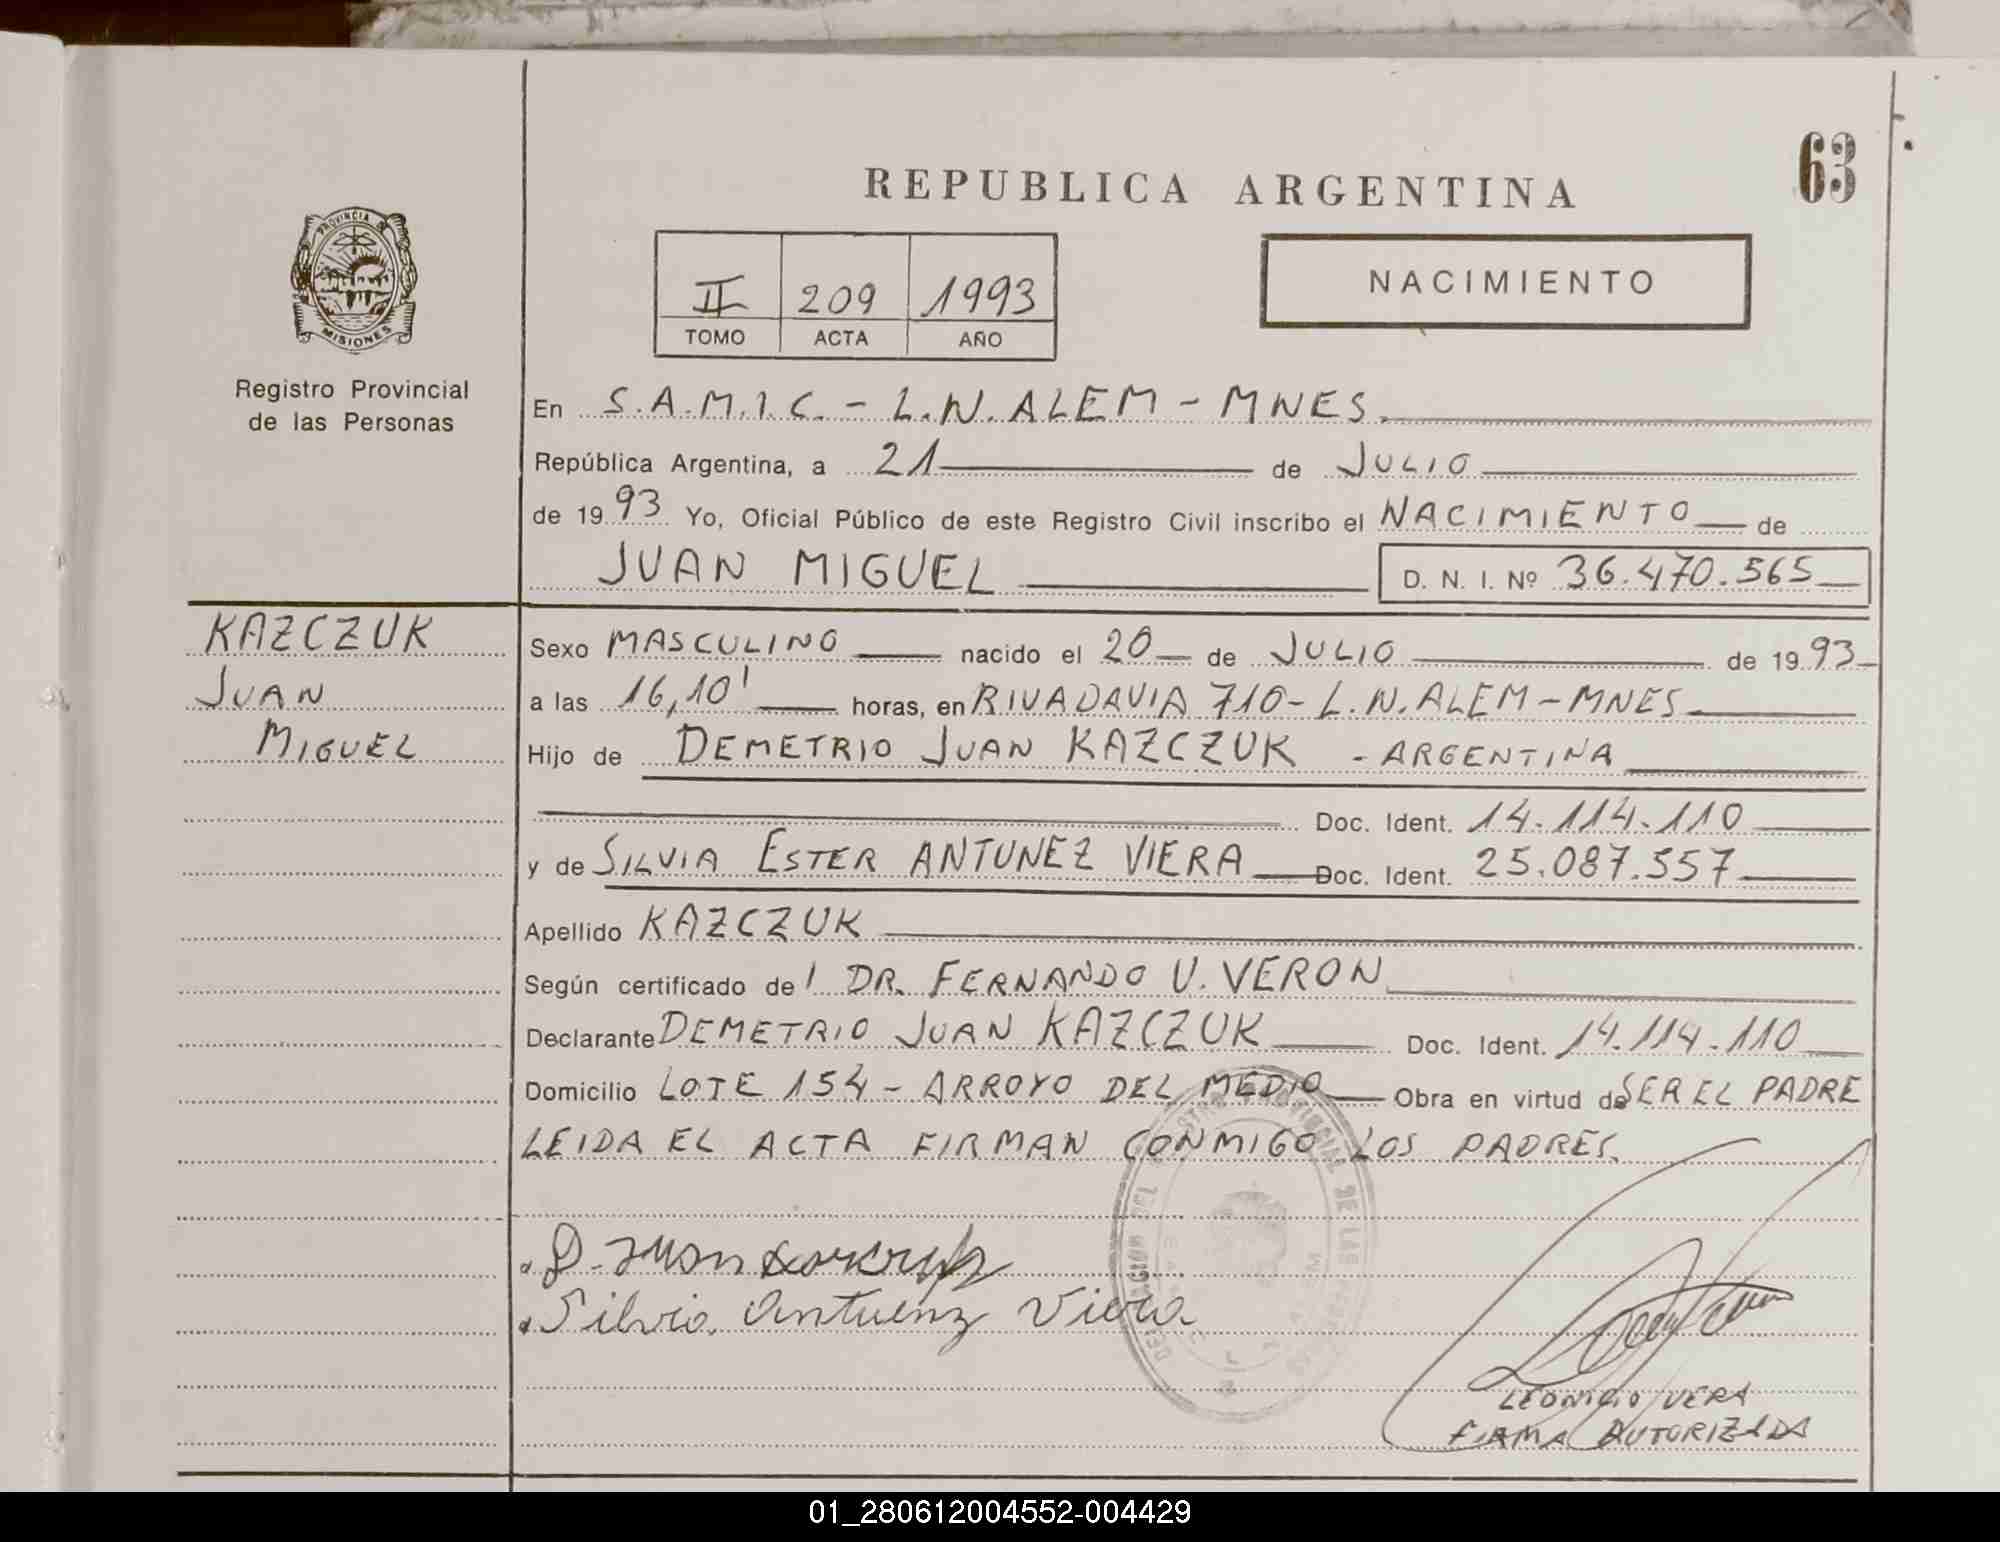 63
REPUBLICA ARGENTINA
PROVINCIA DE
MISIONES
Registro Provincial
de las Personas
II 209 1993
TOMO ACTA AÑO
NACIMIENTO
En S.A.M.I.C. - L.N. ALEM - MNES.
República Argentina, a 21 de JULIO
de 1993 Yo, Oficial Público de este Registro Civil inscribo el NACIMIENTO de
JUAN MIGUEL D. N. I. Nº 36.470.565
KAZCZUK
JUAN
MIGUEL
Sexo MASCULINO nacido el 20 de JULIO de 1993
a las 16,10' horas, en RIVADAVIA 710 - L.N. ALEM - MNES
Hijo de DEMETRIO JUAN KAZCZUK - ARGENTINA
Doc. Ident. 14.114.110
y de SILVIA ESTER ANTUNEZ VIERA Doc. Ident. 25.087.557
Apellido KAZCZUK
Según certificado del DR. FERNANDO V. VERON
Declarante DEMETRIO JUAN KAZCZUK Doc. Ident. 14.114.110
Domicilio LOTE 154 - ARROYO DEL MEDIO Obra en virtud de SER EL PADRE
LEIDA EL ACTA FIRMAN CONMIGO LOS PADRES.
D. Juan
Silvia Antuenz Viera
LEONICIO VERA
FIRMA AUTORIZADA
01_280612004552-004429